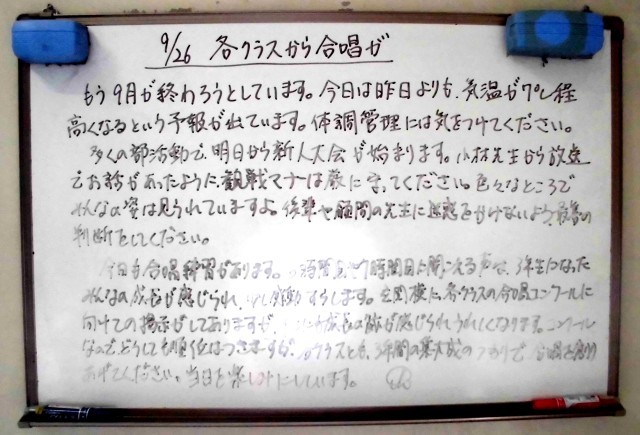 9/26 各クラスから合唱が
もう9月が終わろうとしています。今日は昨日よりも、気温が7℃程
高くなるという予報が出ています。体調管理には気をつけてください。
多くの部活動で、明日から新人大会が始まります。小林先生から放送
でお話があったように、観戦マナーは厳に守ってください。色々なところで
みんなの姿は見られていますよ。後輩や顧問の先生に迷惑をかけないよう、最善の
判断をしてください。
今日も合唱練習があります。時間目に聞こえる声は、3年生になった
みんなの成長が感じられ、感動すらします。玄関横に、各クラスの合唱コンクールに
向けての掲示がしてありますが、成長の跡が感じられうれしくなります。コンクール
なので、どうしても順位はつきますが、クラスとも、3年間の集大成のつもりで、合唱を創り
あげてください。当日を楽しみにしています。